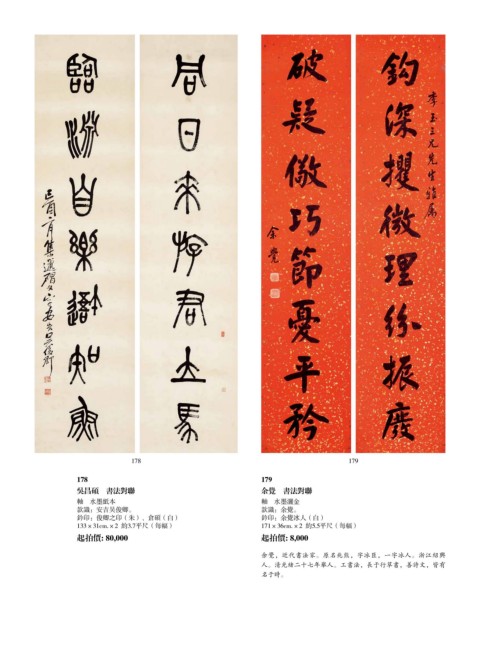 鈎深攫微理紛振廢
李玉三兄先生雅屬
破疑儆巧節憂平矜
余覺
君
日
來
游
君
馬
臨
游
自
樂
知
魚
178
179
178
吳昌碩　書法對聯
軸　水墨紙本
款識：安吉吴俊卿。
鈐印：俊卿之印（朱）、倉碩（白）
133 × 31cm. × 2　約3.7平尺（每幅）
起拍價: 80,000
179
余覺　書法對聯
軸　水墨灑金
款識：余覺。
鈐印：余覺冰人（白）
171 × 36cm. × 2　約5.5平尺（每幅）
起拍價: 8,000
余覺，近代書法家。原名兆熊，字冰臣，一字冰人。浙江紹興
人。清光緒二十七年舉人。工書法，長于行草書，善詩文，皆有
名于時。